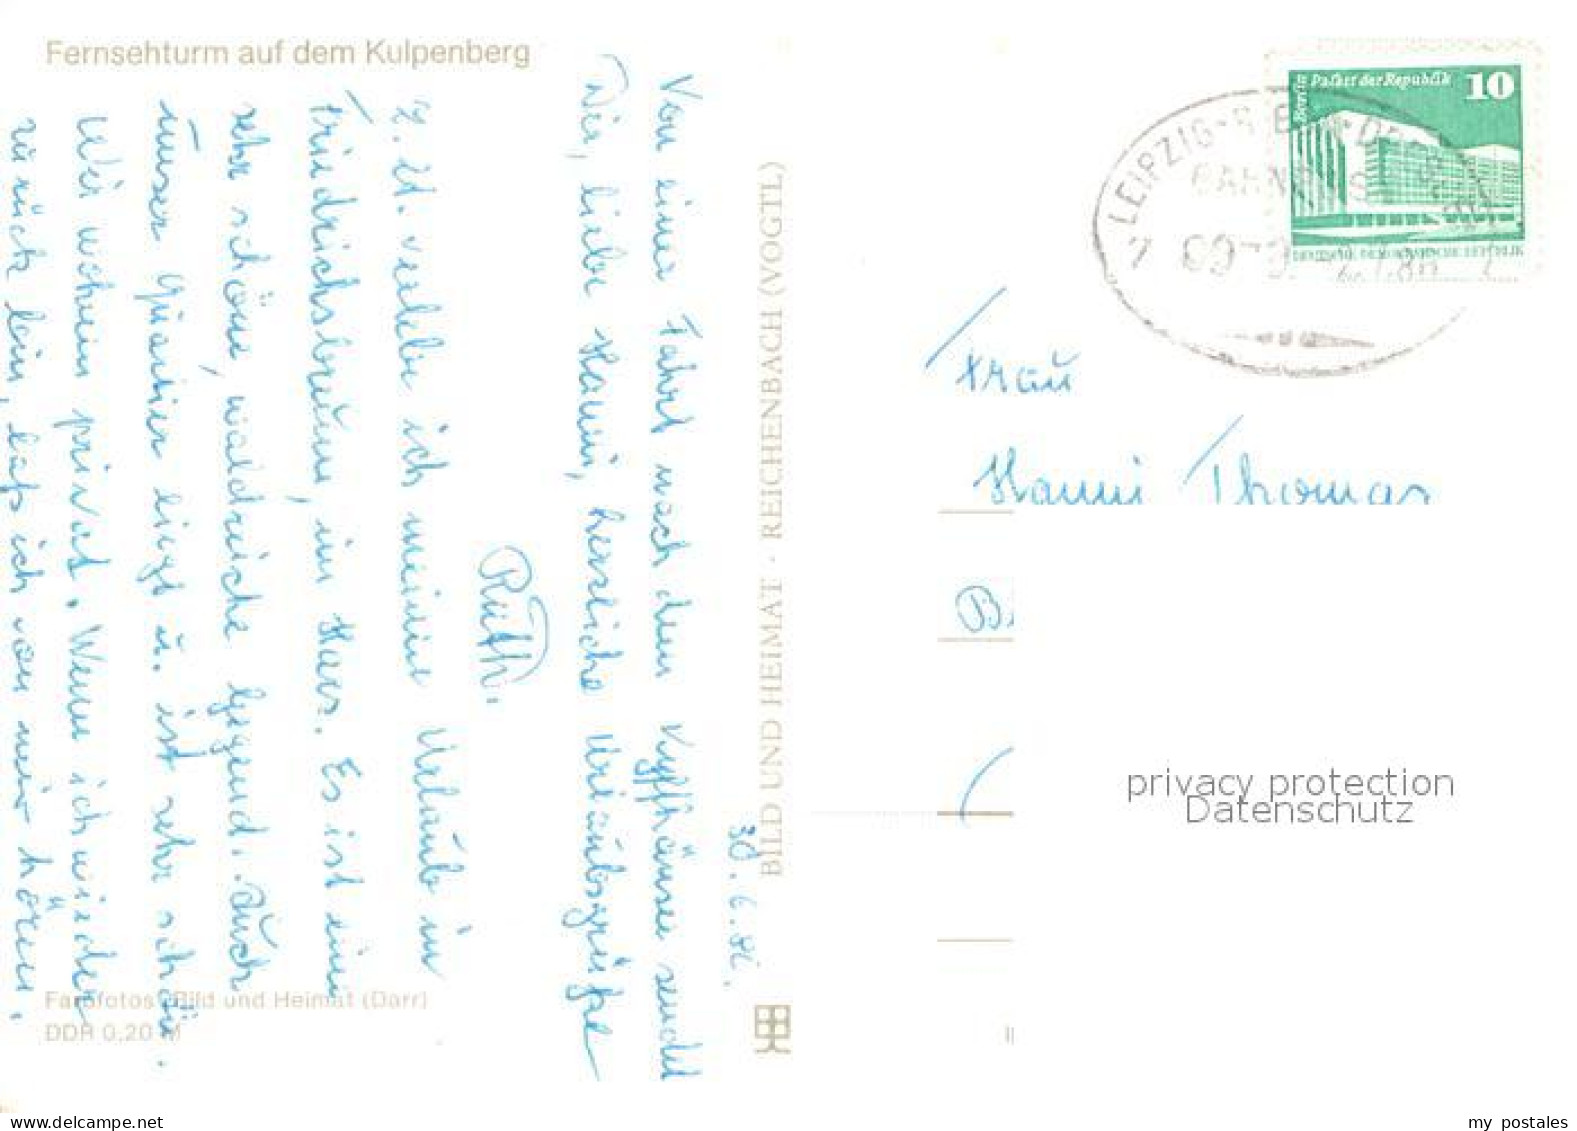 Fernsehturm auf dem Kulpenberg
30.6.82.
Von einer Fahrt nach dem Kyffhäuser sendet
Dir, liebe Hanni, herzliche Urlaubsgrüße
Ruth.
Z. Zt. verlebe ich meinen Urlaub in
Friedrichsbrunn, im Harz. Es ist eine
sehr schöne, waldreiche Gegend. Auch
unser Quartier liegt u. ist sehr schön.
Wir wohnen privat. Wenn ich wieder
zurück bin, laß ich von mir hören.
Farbfotos: Bild und Heimat (Darr)
DDR 0,20 M
BILD UND HEIMAT · REICHENBACH (VOGTL)
Berlin Palast der Republik 10
DEUTSCHE DEMOKRATISCHE REPUBLIK
LEIPZIG-
Frau
Hanni Thomas
privacy protection
Datenschutz
my postales